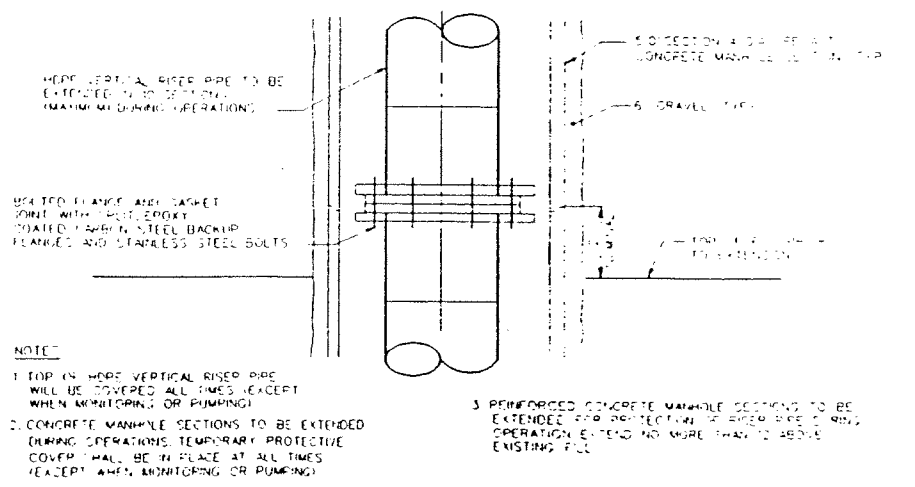 HDPE VERTICAL RISER PIPE TO BE
EXTENDED IN 10' SECTIONS
(MAXIMUM) DURING OPERATIONS
BOLTED FLANGE AND GASKET
JOINT WITH SPLIT, EPOXY
COATED CARBON STEEL BACKUP
FLANGES AND STAINLESS STEEL BOLTS
CONCRETE MANHOLE
6" GRAVEL (TYP)
TO EXTENSION
NOTE
1. TOP OF HDPE VERTICAL RISER PIPE
WILL BE COVERED ALL TIMES (EXCEPT
WHEN MONITORING OR PUMPING)
2. CONCRETE MANHOLE SECTIONS TO BE EXTENDED
DURING OPERATIONS. TEMPORARY PROTECTIVE
COVER SHALL BE IN PLACE AT ALL TIMES
(EXCEPT WHEN MONITORING OR PUMPING)
3. REINFORCED CONCRETE MANHOLE SECTIONS TO BE
EXTENDED FOR PROTECTION OF RISER PIPE DURING
OPERATION EXTEND NO MORE THAN ABOVE
EXISTING FILL